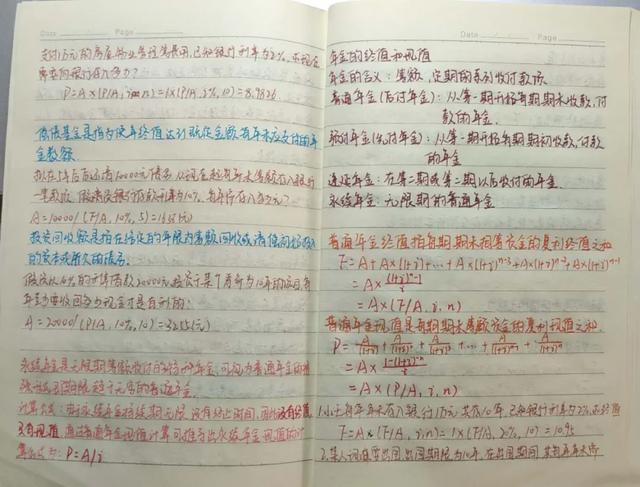 Date Page
支付1万元的房屋物业管理费用,已知银行利率为2%,求现在
需要向银行存入多少?
P=A×(P/A,i,n)=1×(P/A,2%,10)=8.9826
偿债基金是指为使年终值达到既定金额每年末应支付的年
金数额
拟在5年后还清10000元债务,从现在起每年末等额存入银行
一笔款项 假设银行存款利率为10%,每年存入多少元?
A=10000/(F/A,10%,5)=1638(元)
投资回收额是指在给定的年限内等额回收或清偿初始投入
的资本或所欠的债务
假设以10%的利率借款20000元,投资于某个寿命为10年的项目,每
年至少要收回多少现金才是有利的:
A=20000/(P/A,10%,10)=3255(元)
永续年金是无限期等额收付的特种年金,可视为普通年金的特
殊形式,即期限趋于无穷的普通年金
计算公式:由于永续年金持续期无限,没有终止时间,因此没有终值,
只有现值,通过普通年金现值计算可推导出永续年金现值的计
算公式为:P=A/i
Date Page
年金的终值和现值
年金的含义:等额,定期的系列收付款项
普通年金(后付年金):从第一期开始每期期末收款,付
款的年金.
预付年金(先付年金):从第一期开始每期期初收款,付款
的年金
递延年金:在第二期或第二期以后收付的年金.
永续年金:无限期的普通年金
普通年金终值指每期期末相等资金的复利终值之和
F=A+A×(1+i)+…+A×(1+i)^n-3+A×(1+i)^n-2+A×(1+i)^n-1
=A×((1+i)^n-1)/i
=A×(F/A,i,n)
普通年金现值是每期期末等额资金的复利现值之和.
=A×(1-(1+i)^-n)/i
=A×(P/A,i,n)
1.小王每年年末存入银行1万元,共存10年,已知银行利率为2%,求终值
F=A×(F/A,i,n)=1×(F/A,2%,10)=10.95
2.某人词准备出国,出国期限为10年,在出国期间,其每年年末需